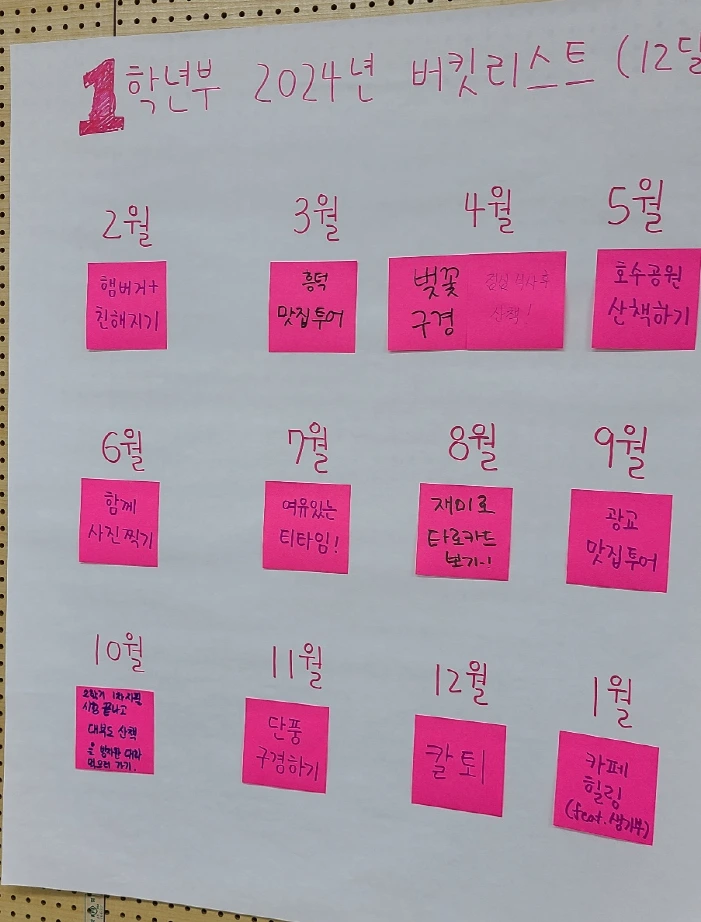 1학년부 2024년 버킷리스트 (12달
2월
햄버거+
친해지기
3월
흥덕
맛집투어
4월
벚꽃
구경
산책!
5월
호수공원
산책하기
6월
함께
사진찍기
7월
여유있는
티타임!
8월
재미로
타로카드
보기~!
9월
광교
맛집투어
10월
2학기 1차지필
시험 끝나고
대부도 산책
먹으러 가기.
11월
단풍
구경하기
12월
칼퇴
1월
카페
힐링
(feat.생기부)